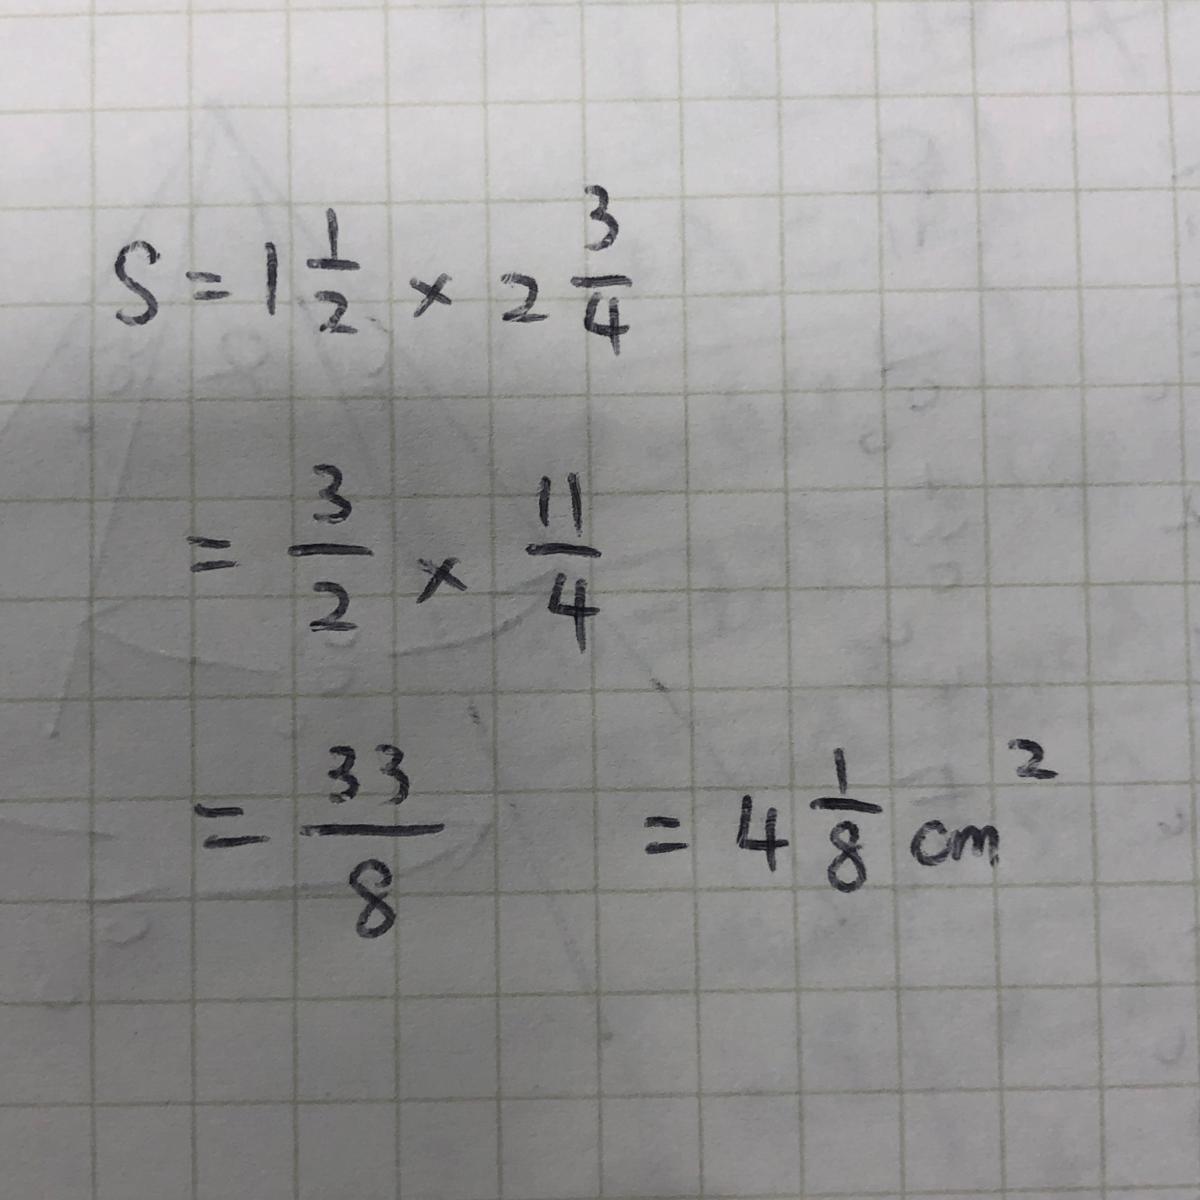 S = 1 1/2 × 2 3/4
= 3/2 × 11/4
= 33/8 = 4 1/8 cm²